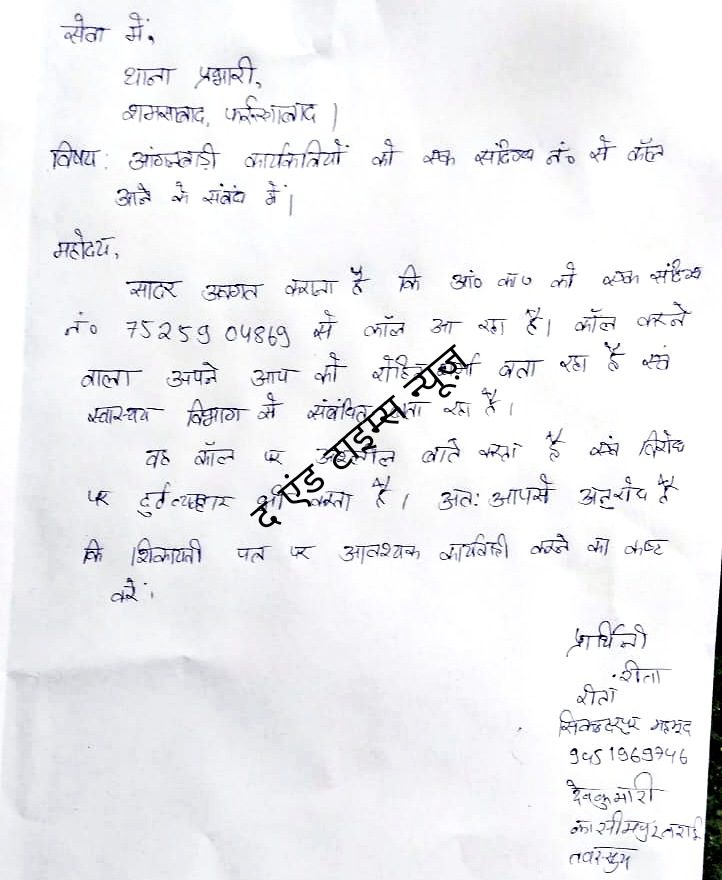 सेवा में,
थाना प्रभारी,
शमसाबाद, फर्रूखाबाद |
विषय: आंगनबाड़ी कार्यकत्रियों को एक संदिग्ध नं० से कॉल
आने के संबंध में |
महोदय,
सादर अवगत कराना है कि आं० का० को एक संदिग्ध
नं० 7525904869 से कॉल आ रहा है। कॉल करने
वाला अपने आप को रोहित बता रहा है एवं
स्वास्थ्य विभाग से संबंधित बता रहा है।
वह कॉल पर अश्लील बाते करता है एवं विरोध
पर दुर्व्यवहार भी करता है। अत: आपसे अनुरोध है
कि शिकायती पत्र पर आवश्यक कार्यवाही करने का कष्ट
करें।
द एंड टाइम्स न्यूज़
प्रार्थिनी
रीता
रीता
सिकन्दरपुर महमूद
9451969746
देवकुमारी
कासीमपुर तराई